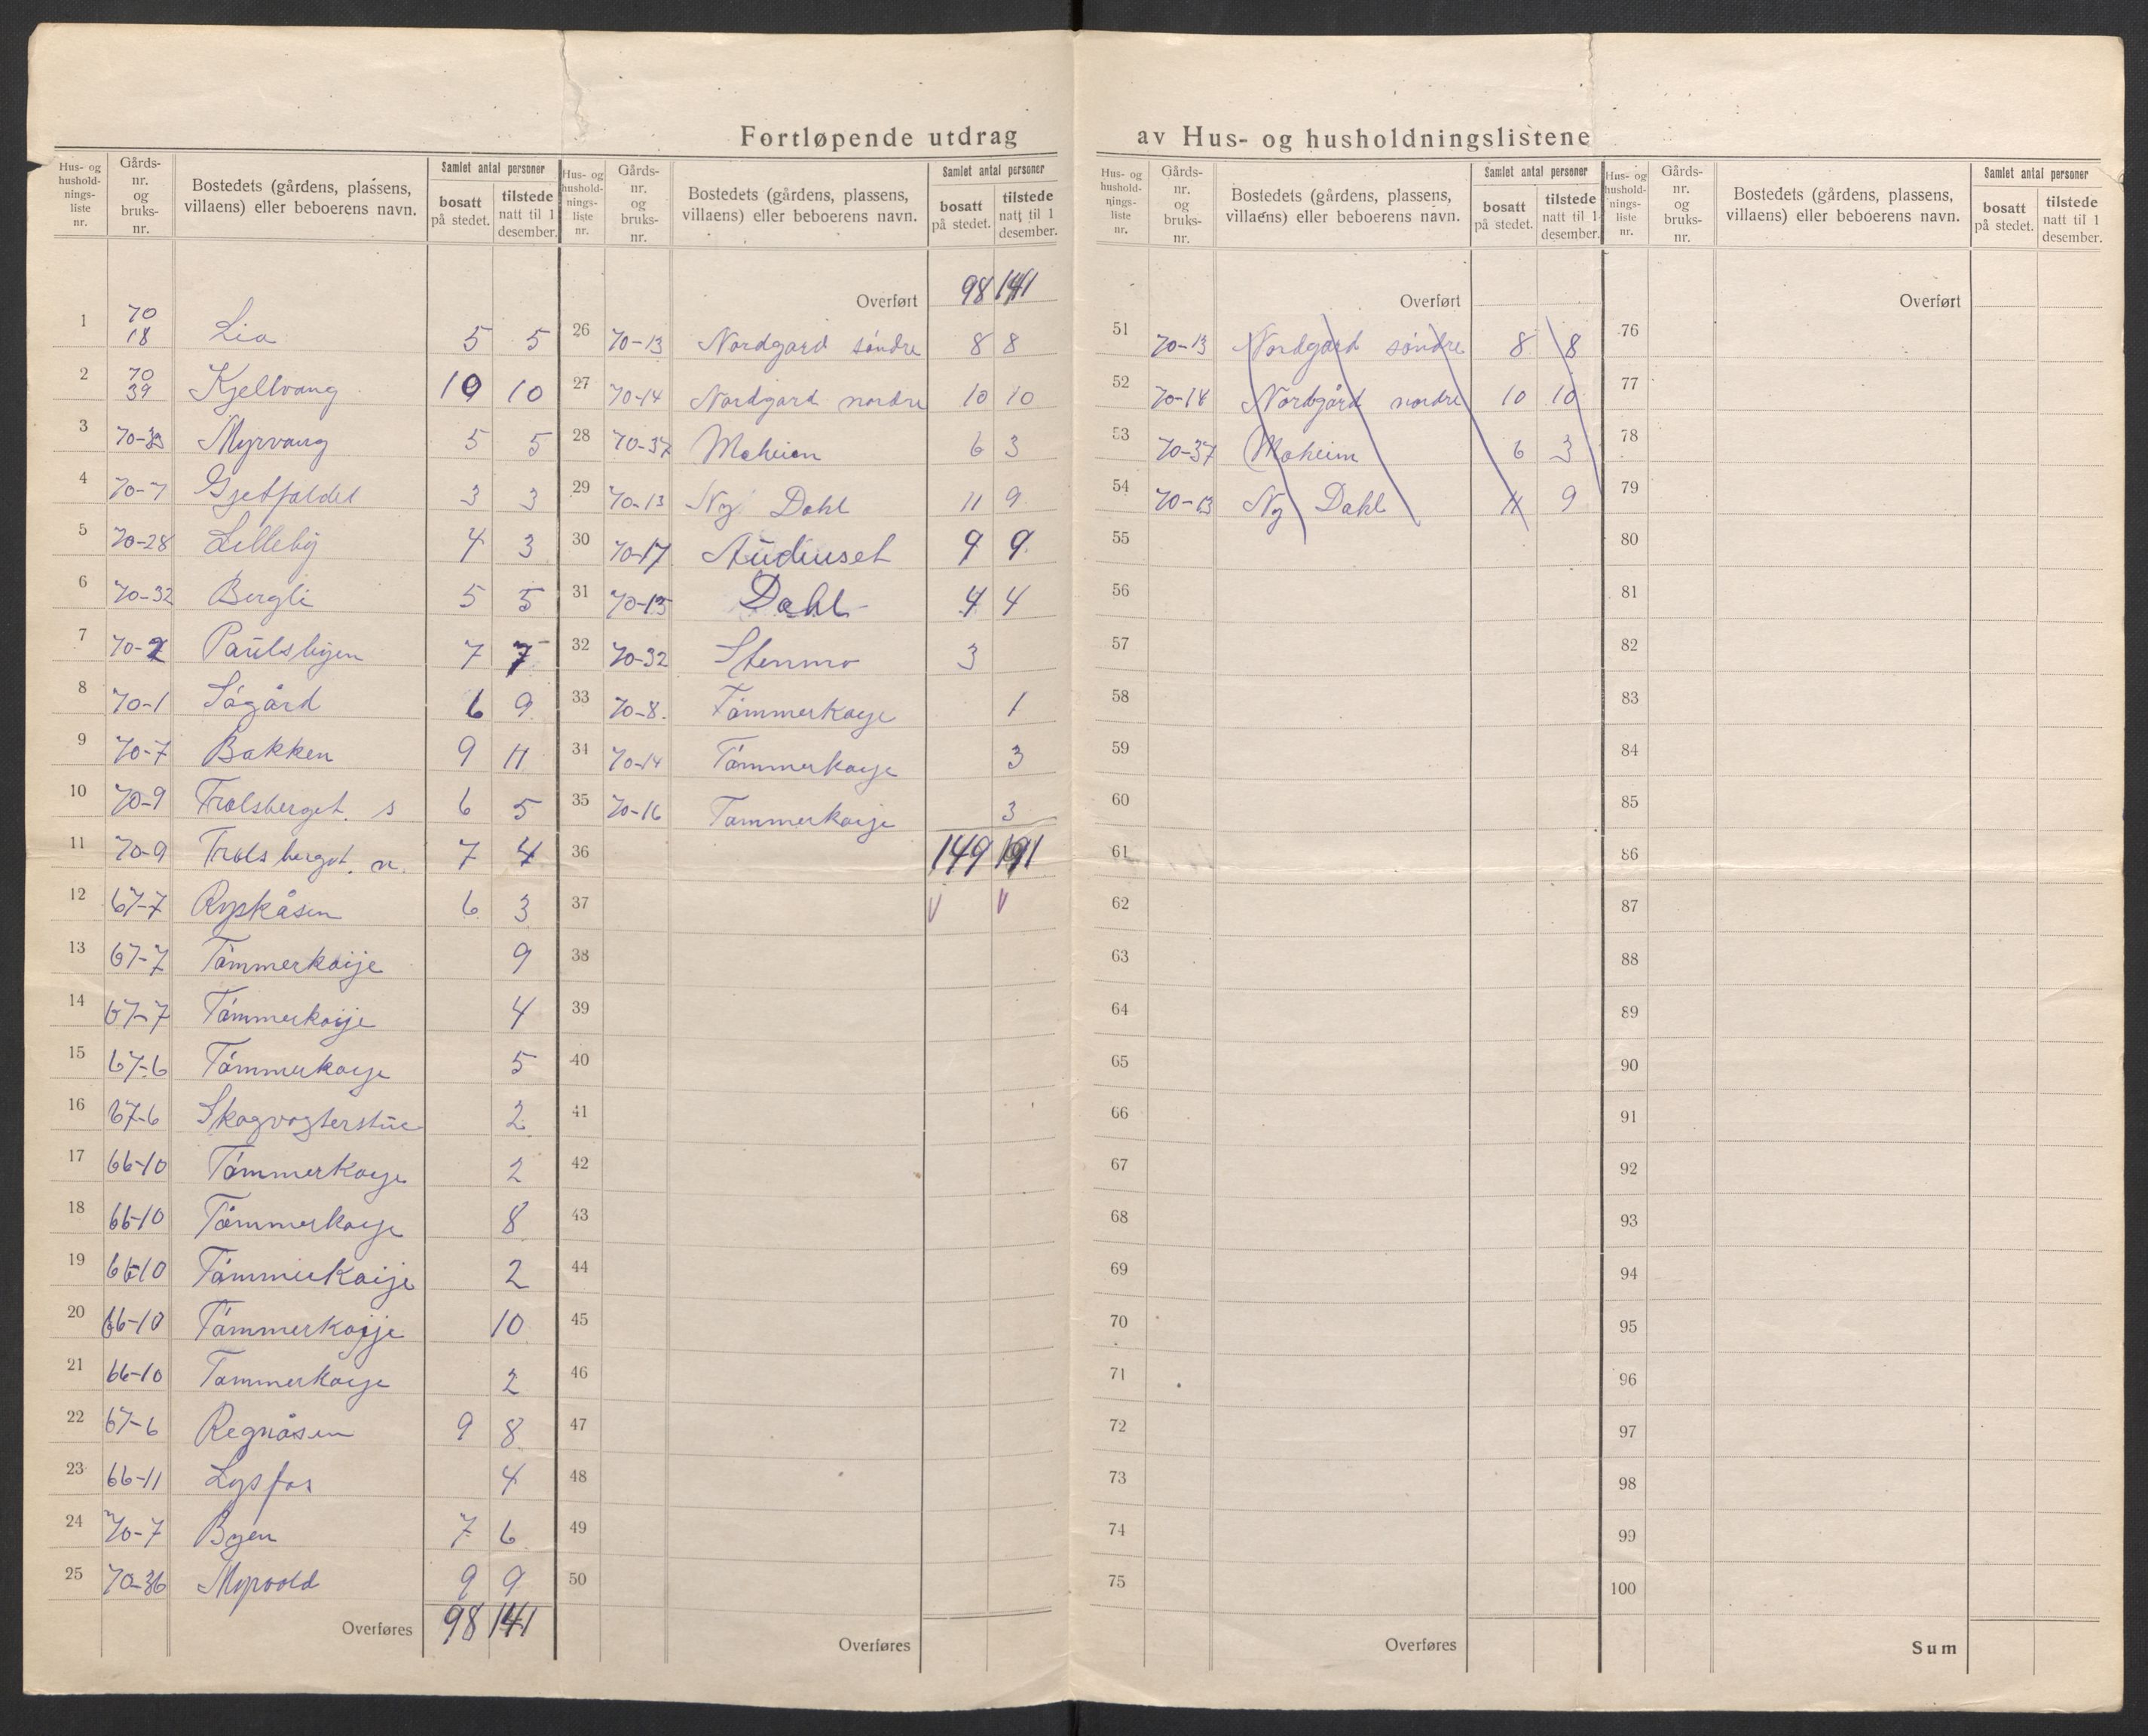 Fortløpende utdrag av Hus- og husholdningslistene
Hus- og husholdnings-liste nr. Gårds-nr. og bruks-nr. Bostedets (gårdens, plassens, villaens) eller beboerens navn. Samlet antal personer bosatt på stedet. tilstede natt til 1 desember.
1 70 18 Lia 5 5
2 70 39 Kjellvang 10 10
3 70-33 Myrvang 5 5
4 70-7 Gjetfaldet 3 3
5 70-28 Lilleby 4 3
6 70-32 Bergli 5 5
7 70-2 Paulsbyen 7 7
8 70-1 Sógård 6 9
9 70-7 Bakken 9 11
10 70-9 Trolsberget. s 6 5
11 70-9 Trolsberget. n. 7 4
12 67-7 Rypkåsen 6 3
13 67-7 Tómmerkoije 9
14 67-7 Tómmerkoije 4
15 67-6 Tómmerkoije 5
16 67-6 Skogvogterstue 2
17 66-10 Tómmerkoije 2
18 66-10 Tómmerkoije 8
19 66-10 Tómmerkoije 2
20 66-10 Tómmerkoije 10
21 66-10 Tommerkoije 2
22 67-6 Regnåsen 9 8
23 66-11 Lysfos 4
24 70-7 Byen 7 6
25 70-36 Myrvold 9 9
Overføres 98 141
Hus- og husholdnings-liste nr. Gårds-nr. og bruks-nr. Bostedets (gårdens, plassens, villaens) eller beboerens navn. Samlet antal personer bosatt på stedet. tilstede natt til 1 desember.
Overført 98 141
26 70-13 Nordgard sóndre 8 8
27 70-14 Nordgard nordre 10 10
28 70-37 Moheim 6 3
29 70-13 Ny Dahl 11 9
30 70-17 Audunset 9 9
31 70-15 Dahl 4 4
32 70-32 Stenmo 3
33 70-8. Tómmerkoje 1
34 70-14 Tómmerkoje 3
35 70-16 Tommerkoije 3
36 149 191
37 V V
38
39
40
41
42
43
44
45
46
47
48
49
50
Overføres
Hus- og husholdnings-liste nr. Gårds-nr. og bruks-nr. Bostedets (gårdens, plassens, villaens) eller beboerens navn. Samlet antal personer bosatt på stedet. tilstede natt til 1 desember.
Overført
51 70-13 Nordgård sóndre 8 8
52 70-14 Nordgård nordre 10 10
53 70-37 Moheim 6 3
54 70-13 Ny Dahl 11 9
55
56
57
58
59
60
61
62
63
64
65
66
67
68
69
70
71
72
73
74
75
Overføres
Hus- og husholdnings-liste nr. Gårds-nr. og bruks-nr. Bostedets (gårdens, plassens, villaens) eller beboerens navn. Samlet antal personer bosatt på stedet. tilstede natt til 1 desember.
Overført
76
77
78
79
80
81
82
83
84
85
86
87
88
89
90
91
92
93
94
95
96
97
98
99
100
Sum